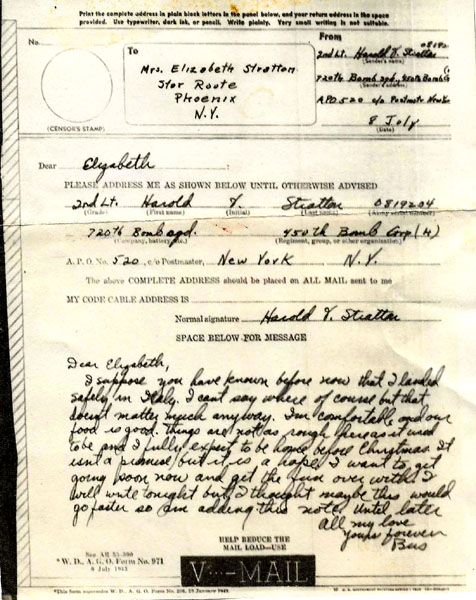 Print the complete address in plain block letters in the panel below, and your return address in the space
provided. Use typewriter, dark ink, or pencil. Write plainly. Very small writing is not suitable.
No.
(CENSOR'S STAMP)
To
Mrs. Elizabeth Stratton
Star Route
Phoenix
N.Y.
From
2nd Lt. Harold V. Stratton
(Sender's name)
720th Bomb sqd., 450th Bomb G
(Sender's address)
A.P.O. 520 c/o Postmstr New Yo
8 July
(Date)
Dear Elizabeth :
PLEASE ADDRESS ME AS SHOWN BELOW UNTIL OTHERWISE ADVISED
2nd Lt. Harold V. Stratton 0819204
(Grade) (First name) (Initial) (Last name) (Army serial number)
720th Bomb sqd. 450th Bomb Grp (H)
(Company, battery, etc.) (Regiment, group, or other organization)
A. P. O. No. 520, c/o Postmaster, New York N.Y.
The above COMPLETE ADDRESS should be placed on ALL MAIL sent to me
MY CODE CABLE ADDRESS IS
Normal signature Harold V. Stratton
SPACE BELOW FOR MESSAGE
Dear Elizabeth,
I suppose you have known before now that I landed
safely in Italy. I cant say where of course but that
doesn't matter much anyway. I'm comfortable and our
food is good. Things are not as rough here as it used
to be and I fully expect to be home before Christmas. It
isnt a promise but it is a hope. I want to get
going soon now and get the fun over with. I
will write tonight but I thought maybe this would
go faster so am adding this note. Until later
all my love
Yours forever
Bus
See AR
W. D., A. G. O. Form No. 971
8 July 1943
HELP REDUCE THE
MAIL LOAD—USE
V···-MAIL
*This form supersedes W. D., A. G. O. Form No.